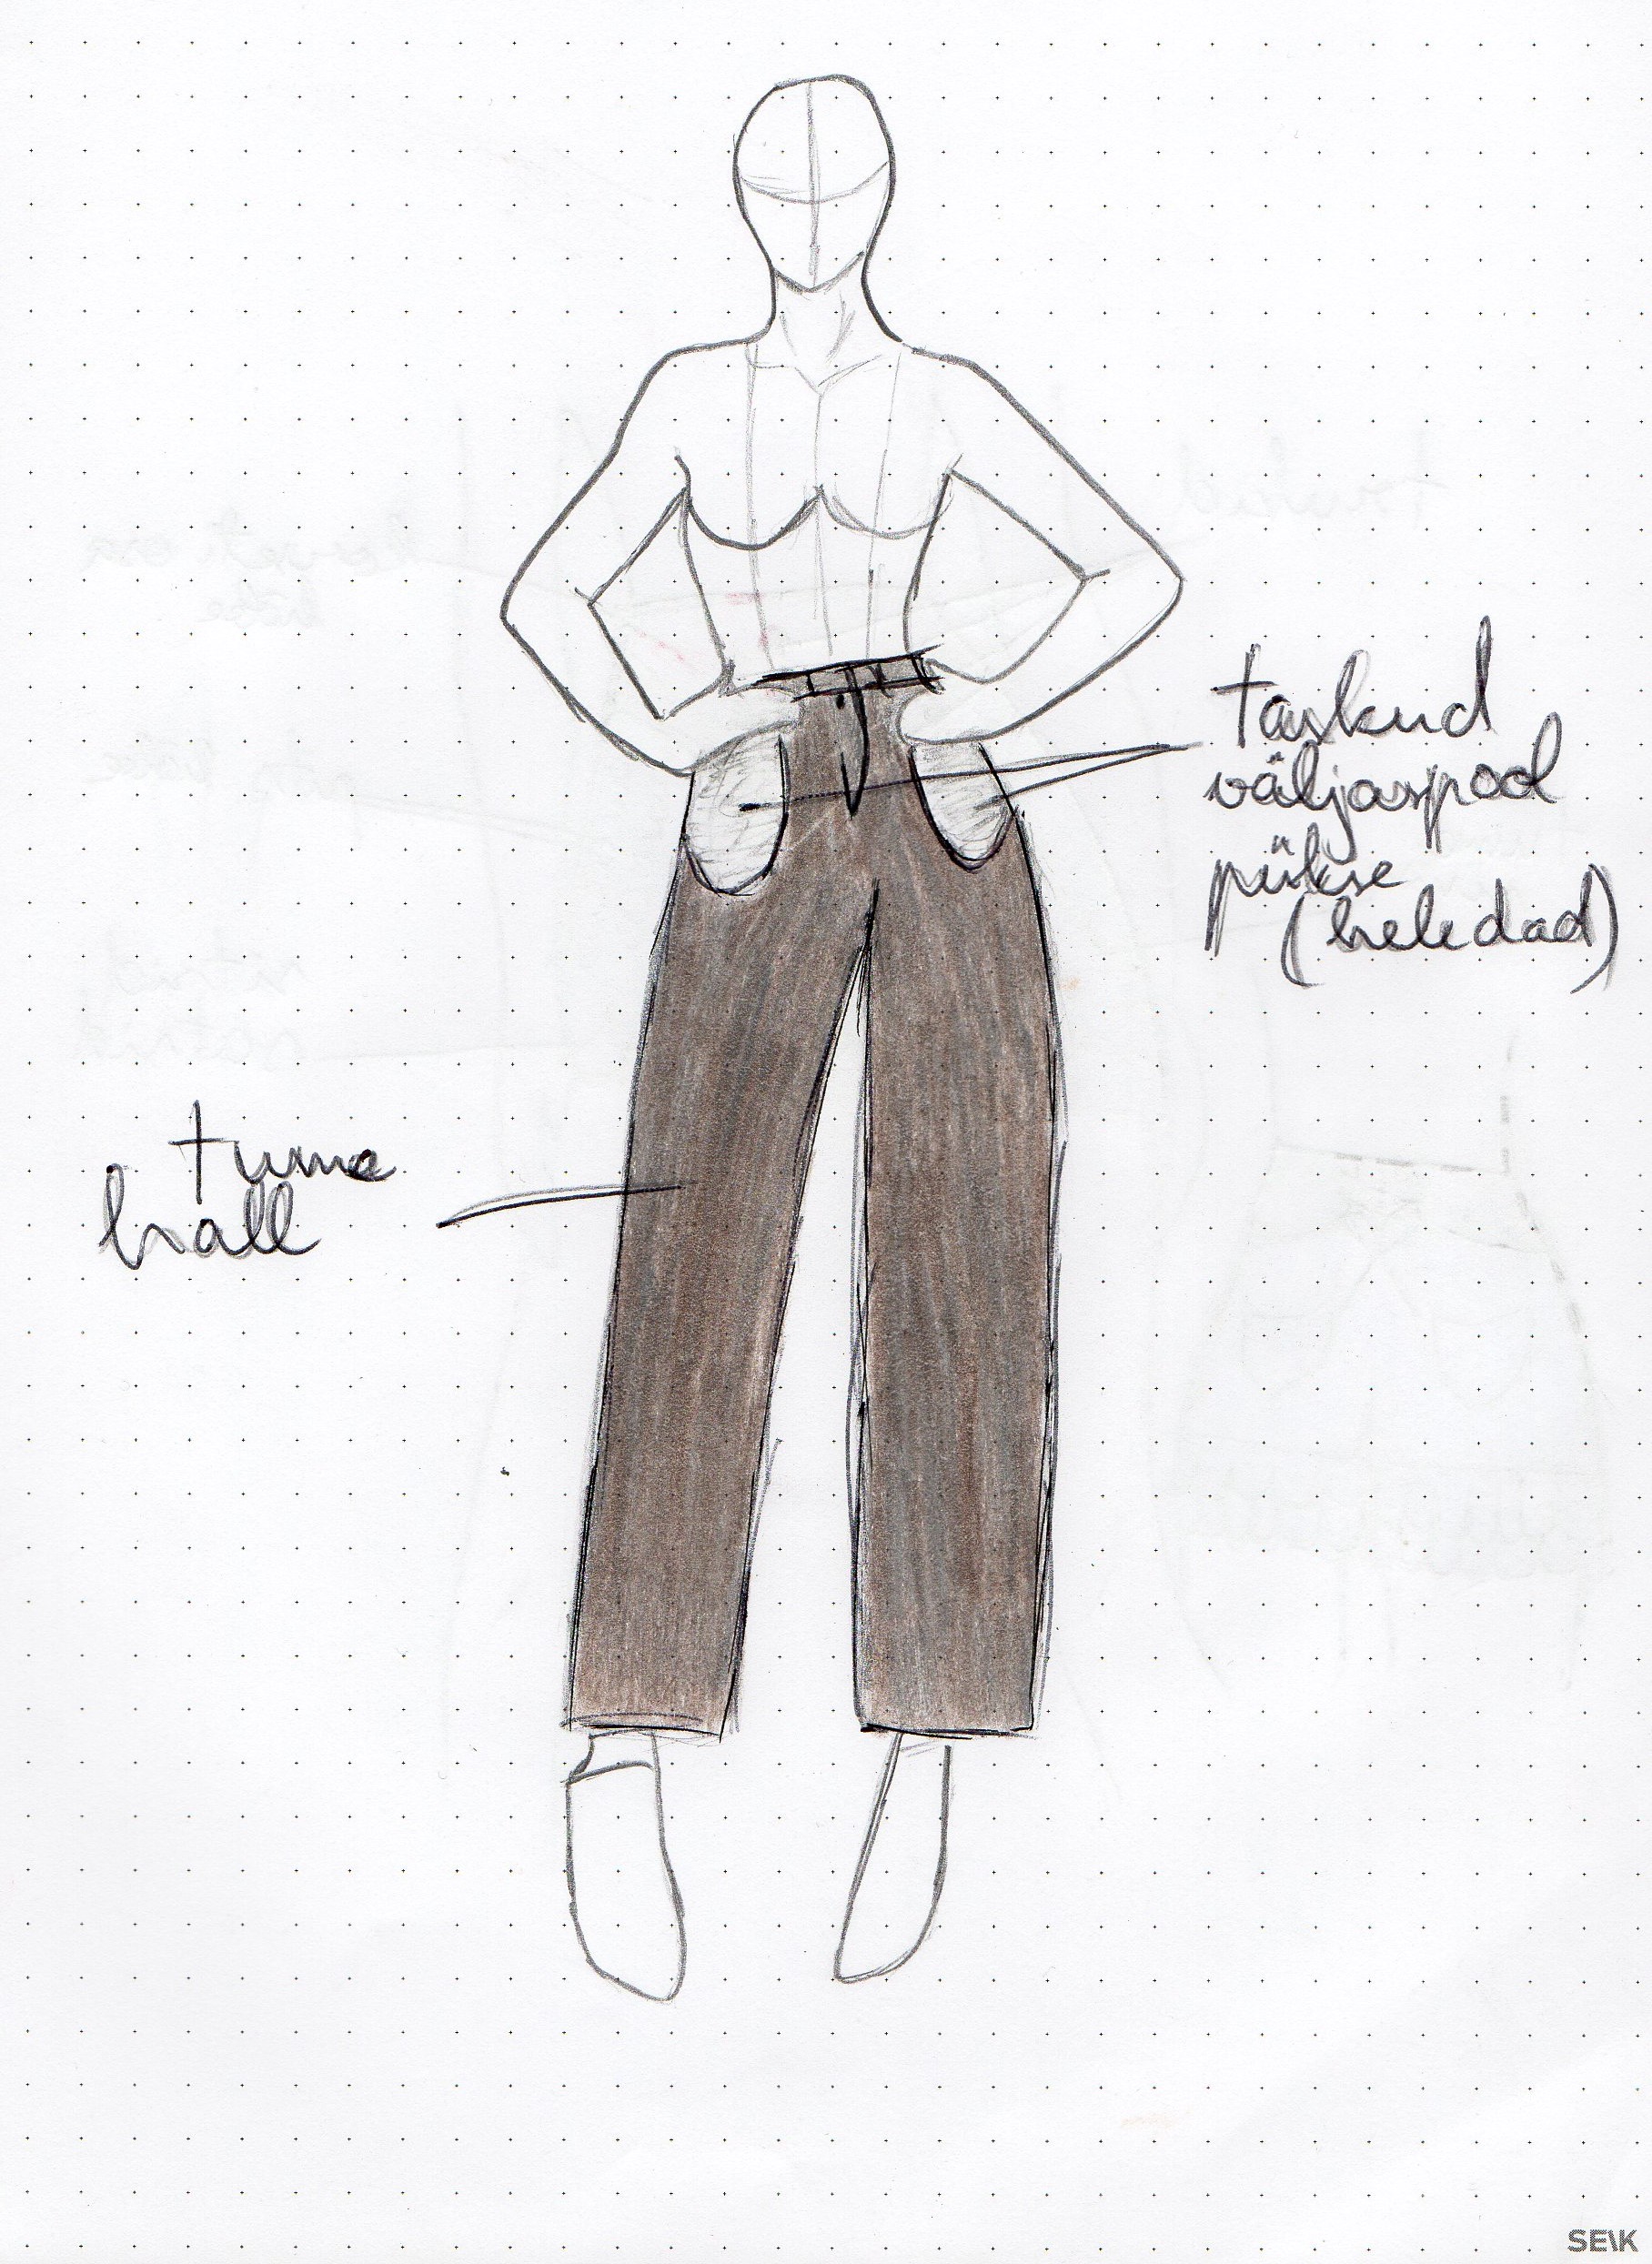 taskud
väljaspool
pükse
(heledad)
tume
hall
SE\K